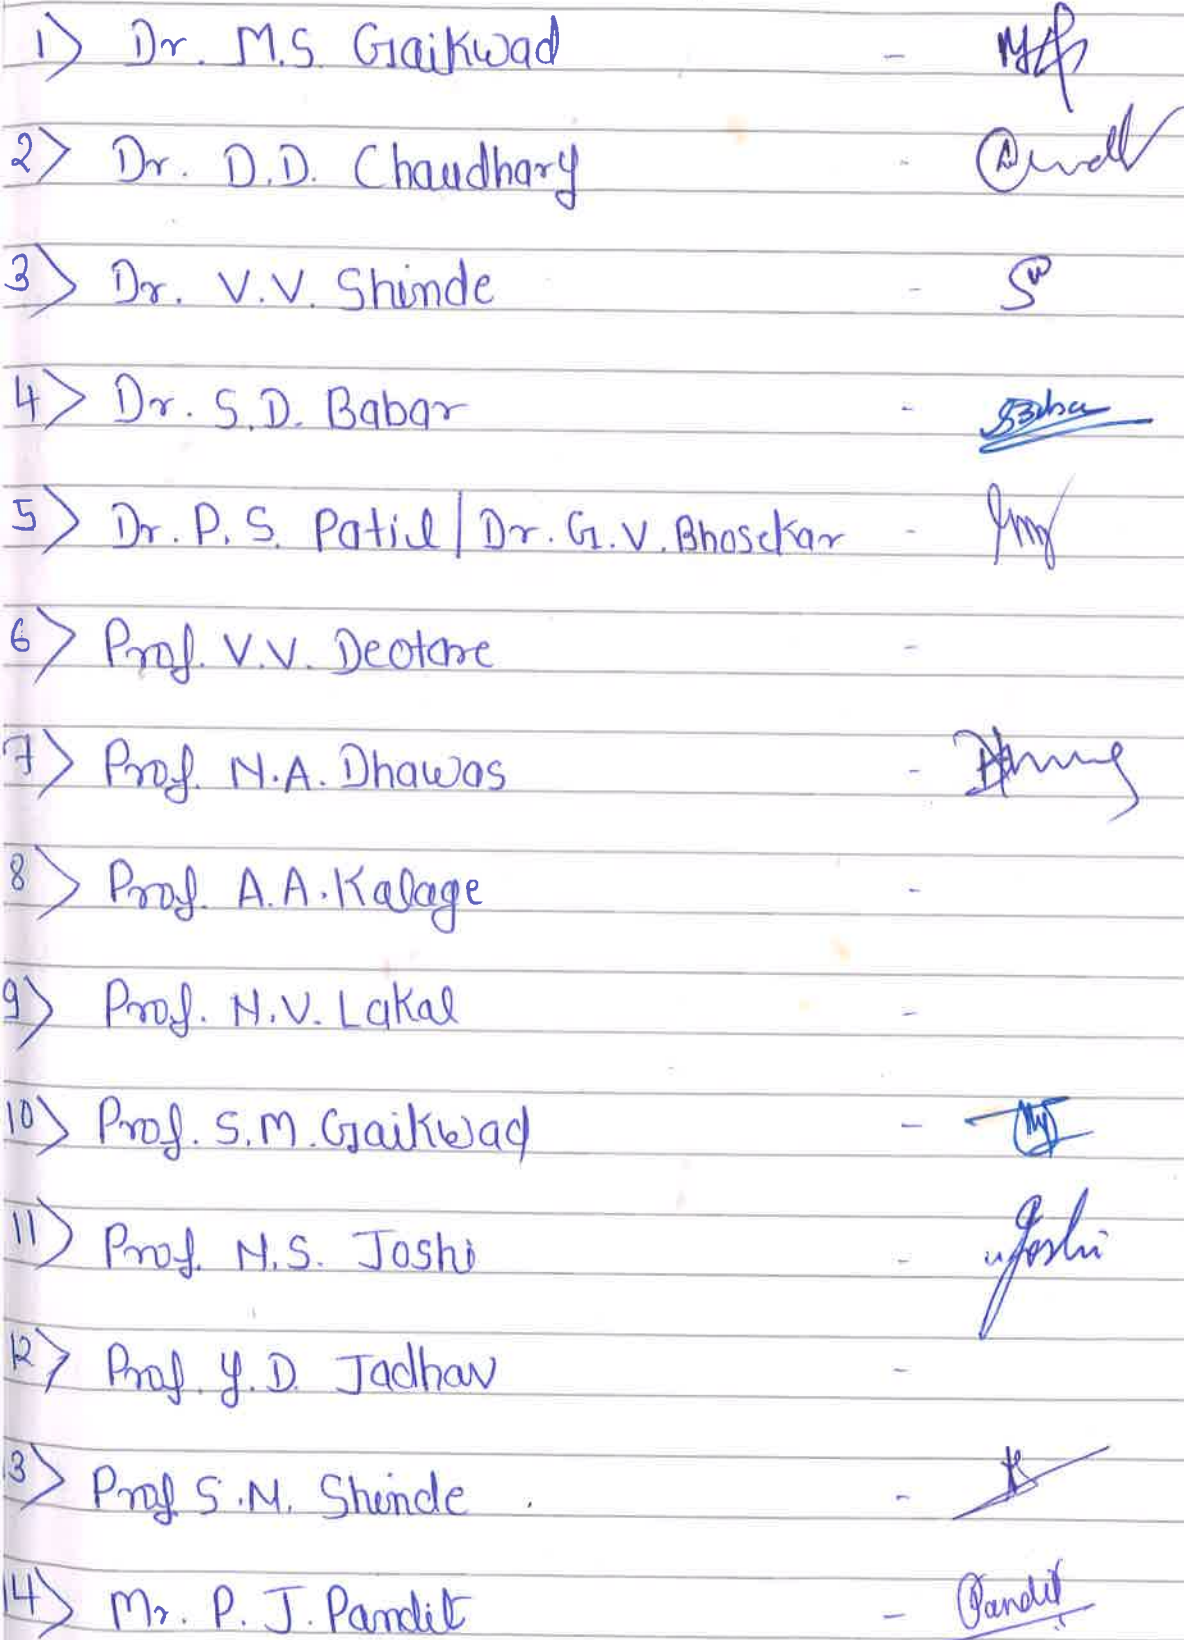 1) Dr. M.S. Gaikwad -
2) Dr. D.D. Chaudhary -
3) Dr. V.V. Shinde -
4) Dr. S.D. Babar -
5) Dr. P.S. Patil / Dr. G.V. Bhosekar -
6) Prof. V.V. Deotare -
7) Prof. N.A. Dhawas -
8) Prof. A.A. Kalage -
9) Prof. N.V. Lakal -
10) Prof. S.M. Gaikwad -
11) Prof. N.S. Joshi - Joshi
12) Prof. Y.D. Jadhav -
13) Prof S.N. Shinde -
14) Mr. P. J. Pandit - Pandit